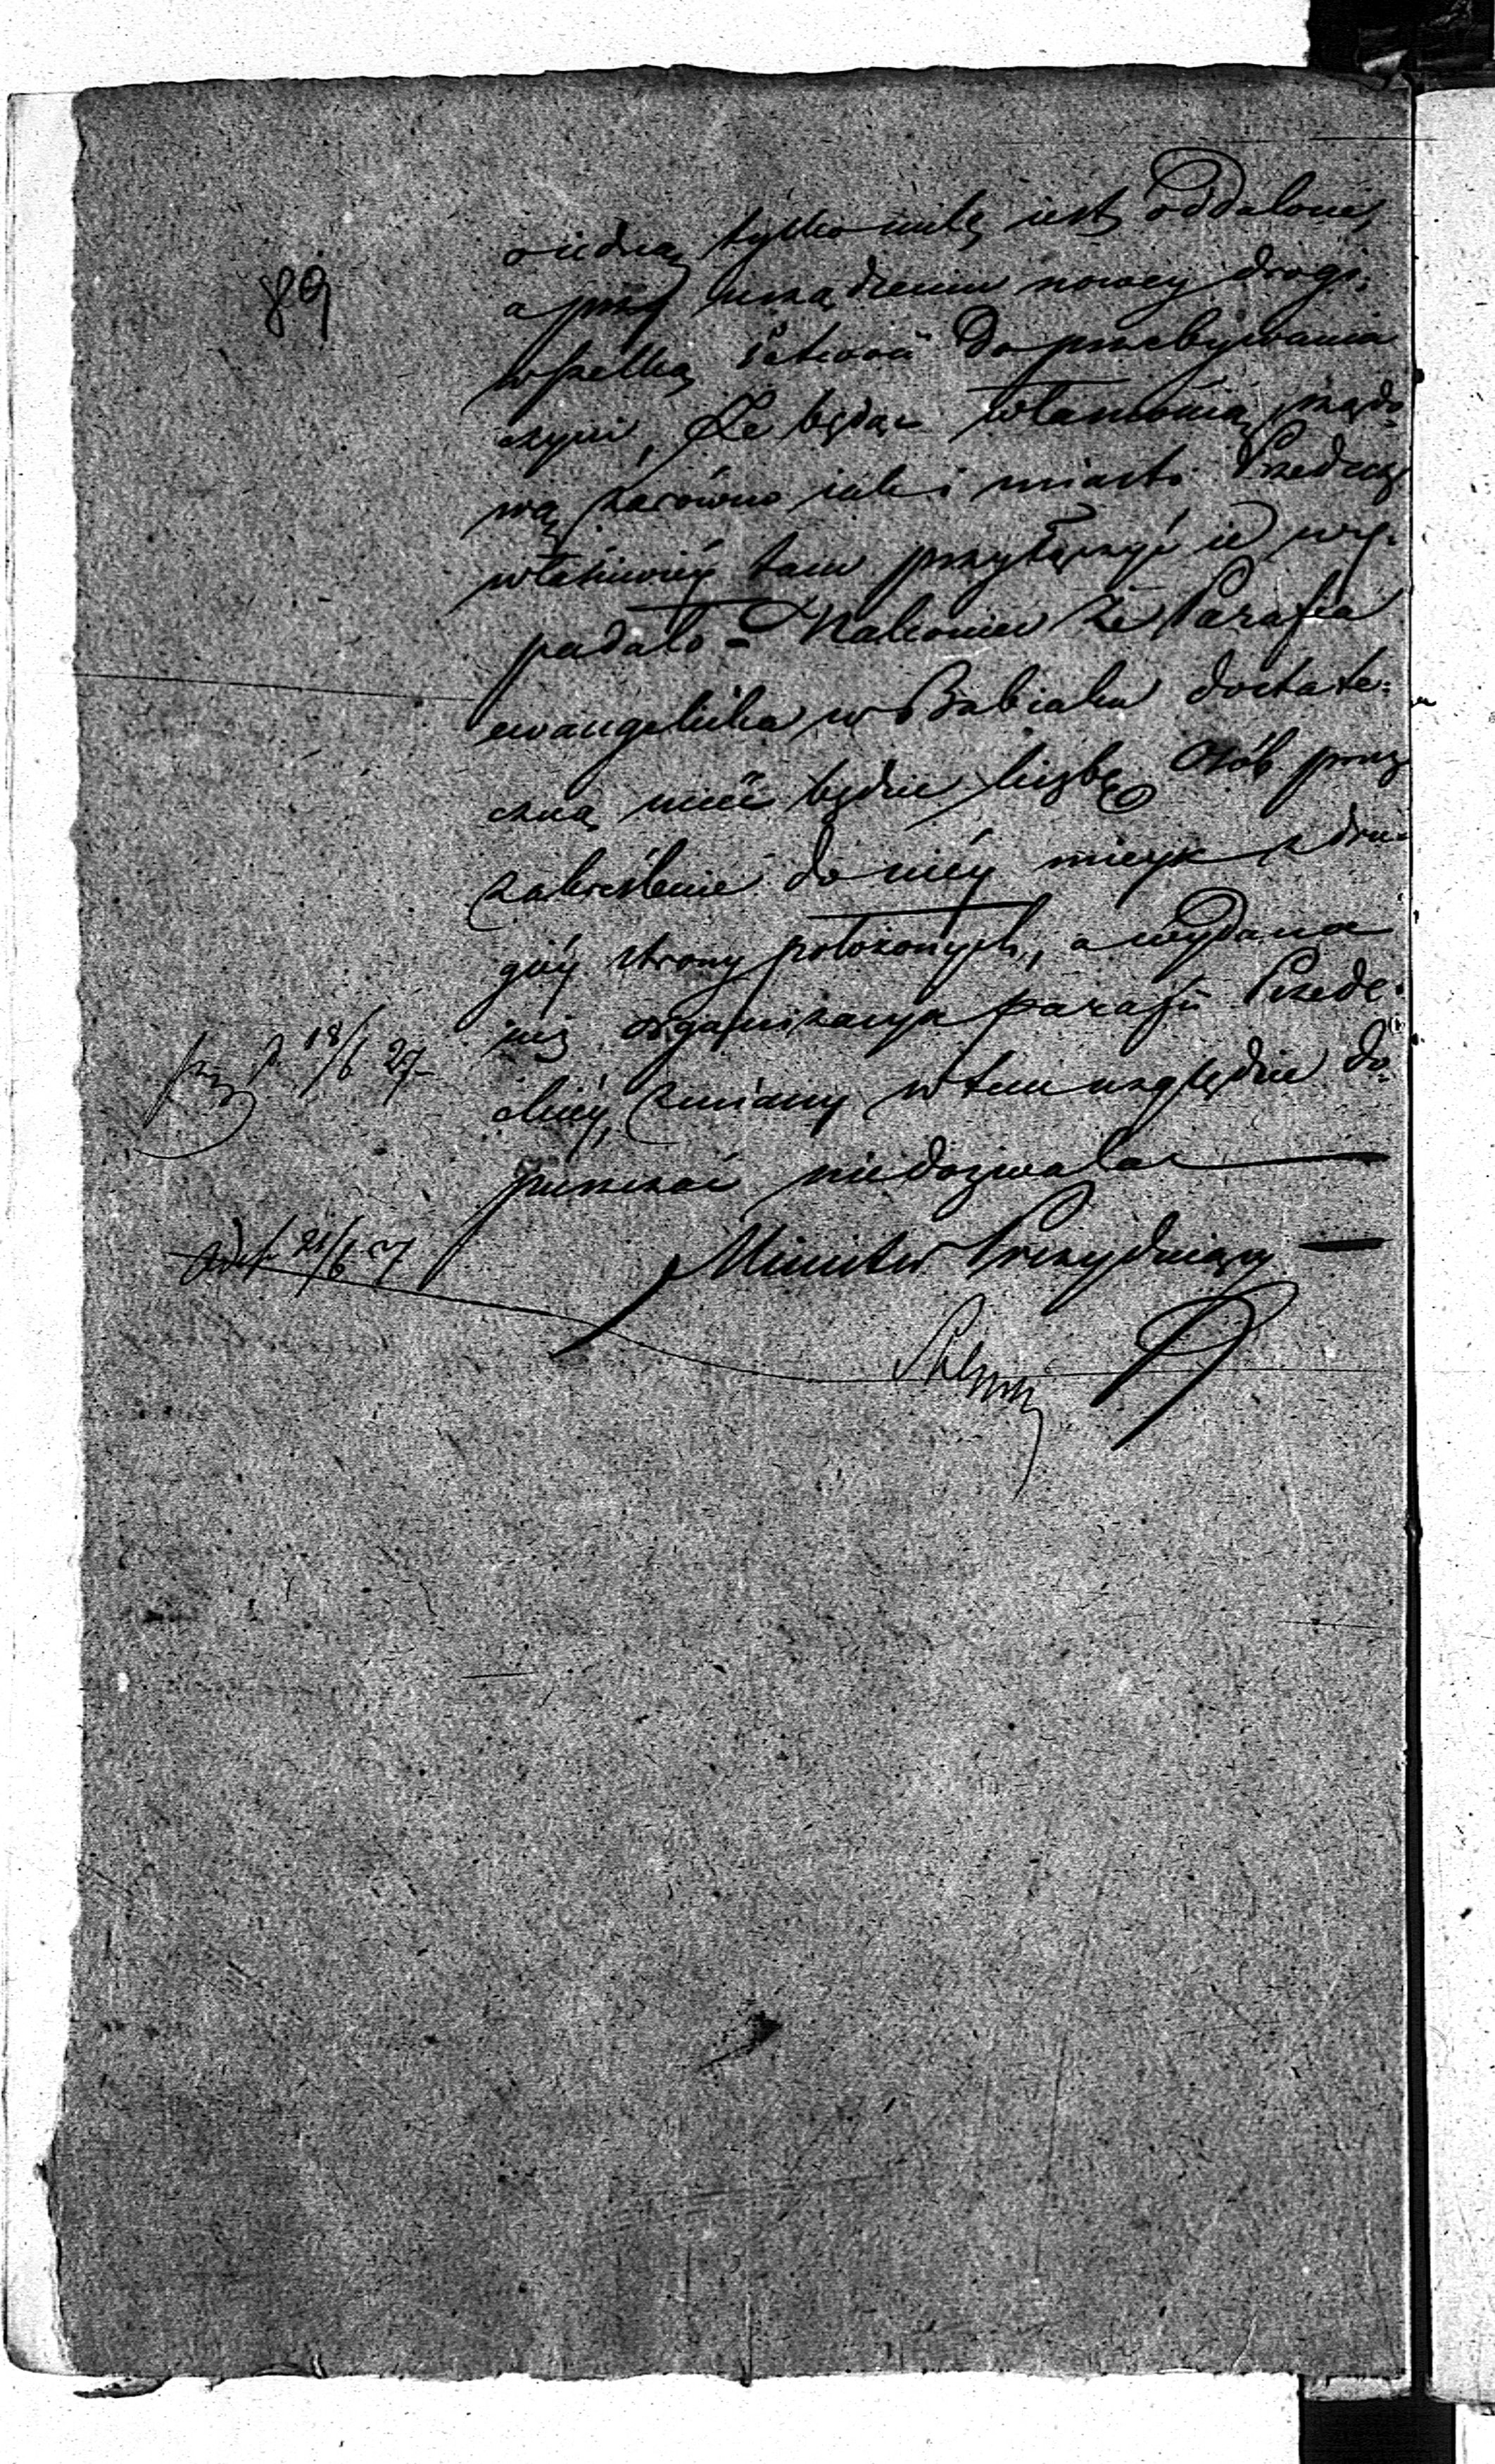 89
o iedną tylko milę iest oddaloney
a przy urządzeniu nowey drogi,
wszelką łatwość do przebywania
czyni, Że będąc własnością rządo-
wą zarówno iak i miasto Przedecz
właściwiéy tam przyłączyć ie wy-
padało = Nakoniec że Parafia
ewangelicka w Babiaku dostate-
czną mieć będzie liczbę Osób przez
zakreślenie do niéy mieysc z dru-
giéy strony położonych, a wydana
iuż organizacya parafii Przede-
ckiéy, zmiany w tem względzie do-
puszczać niedozwala
Minister Prezyduiący
18/6 27
21/6 27